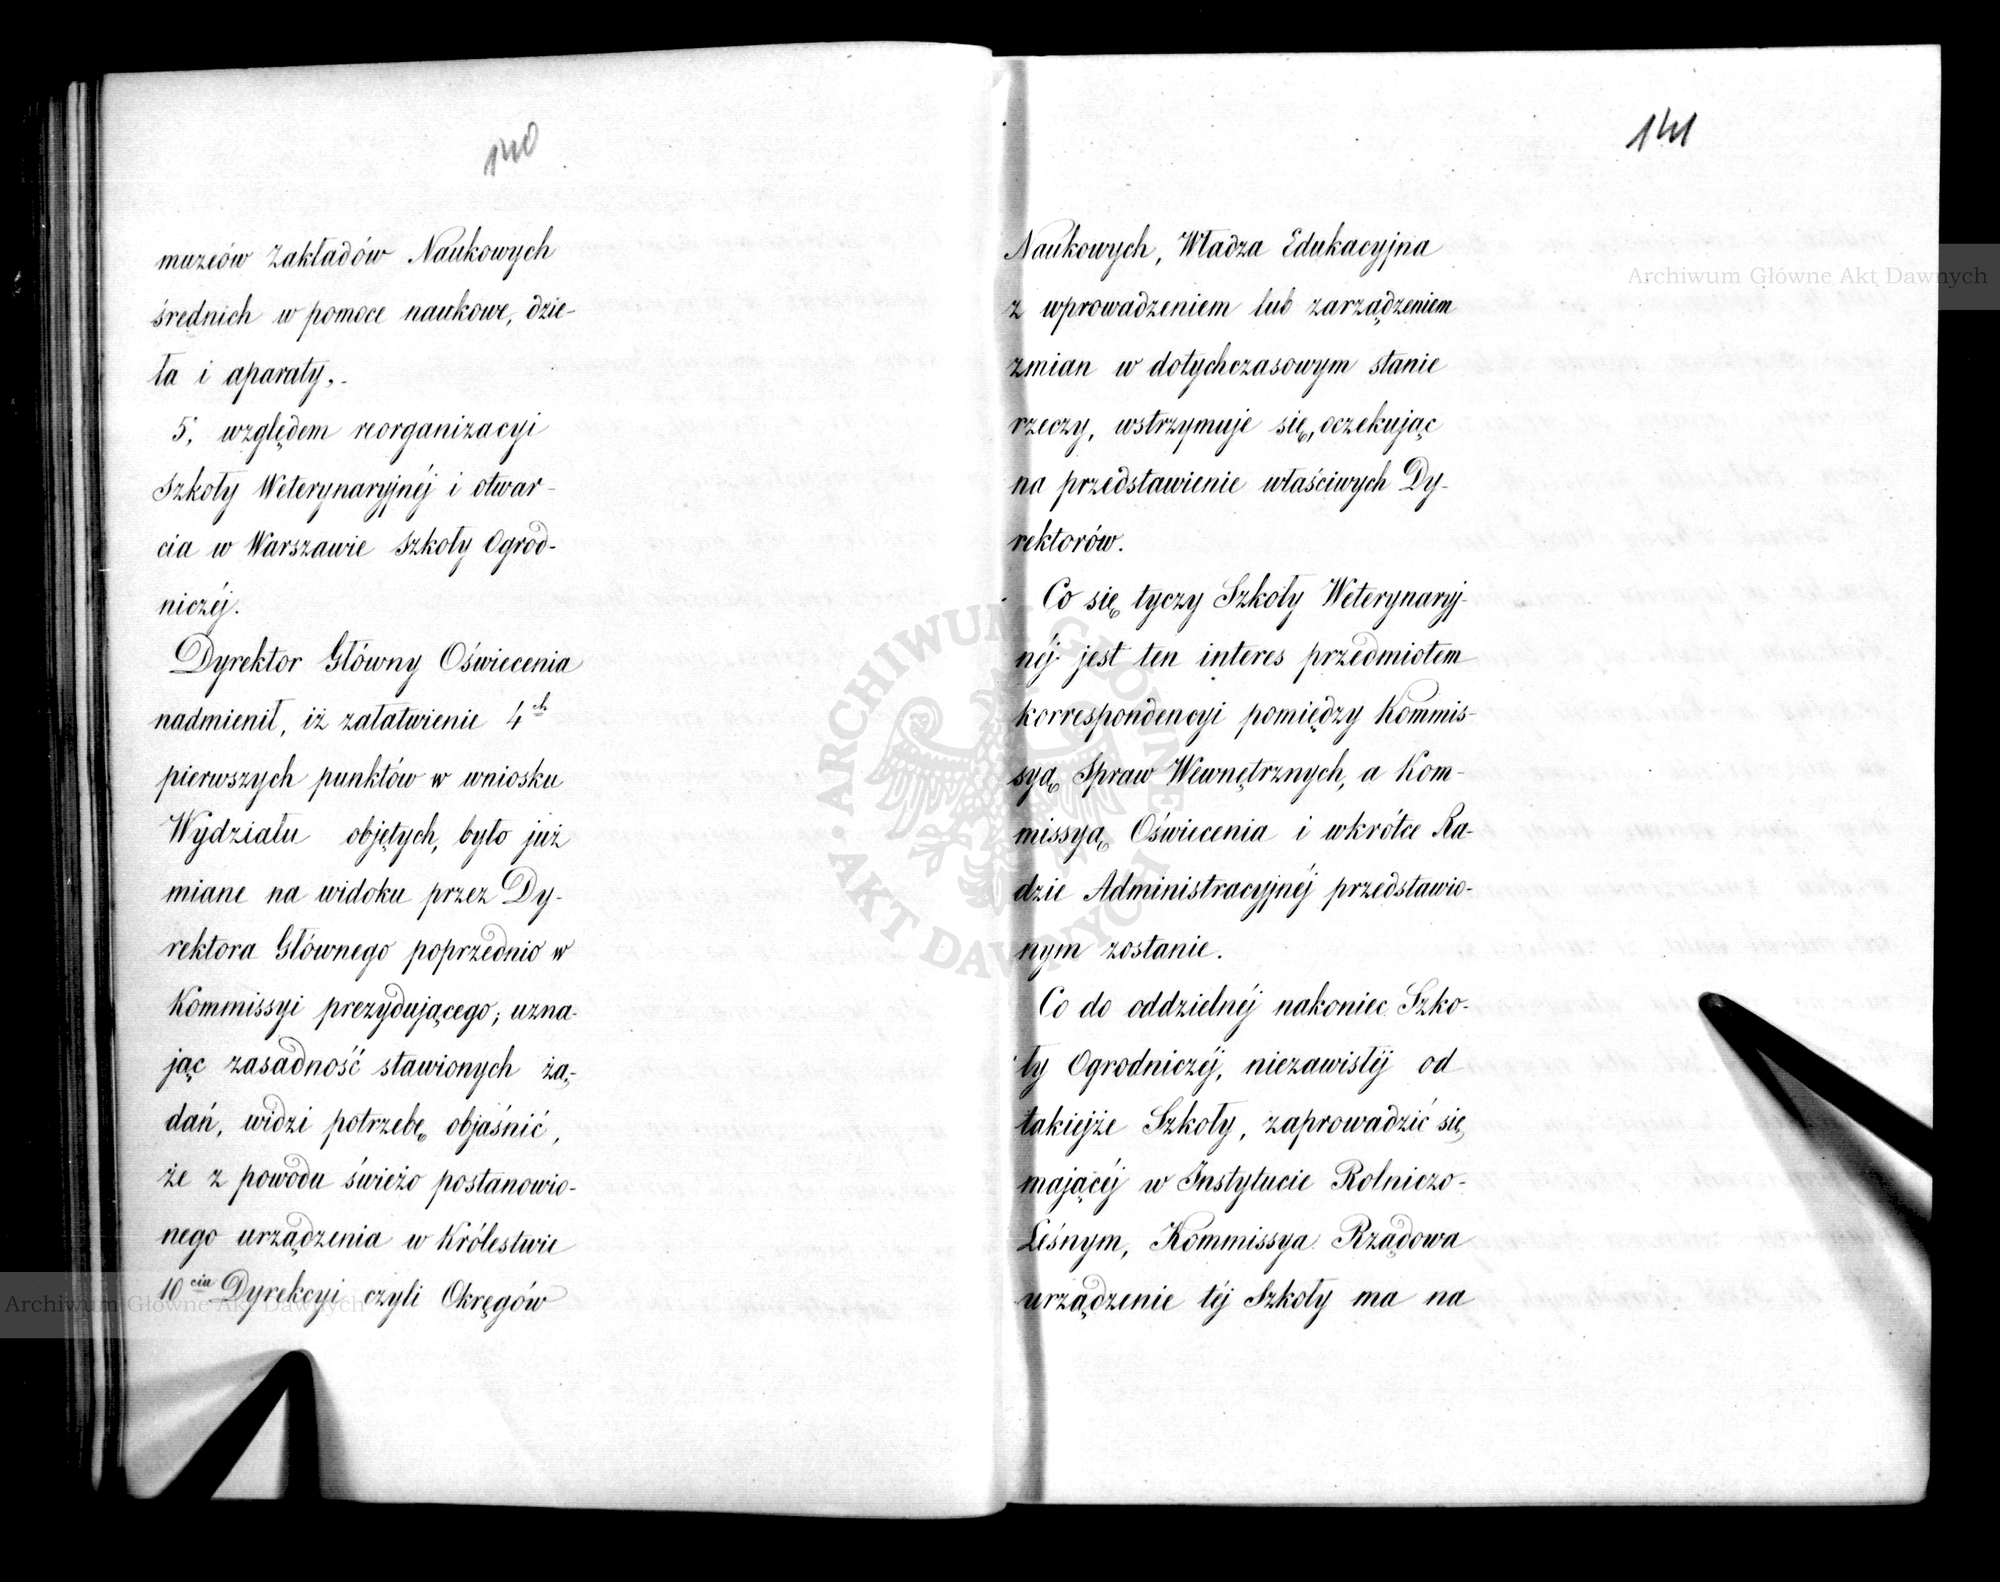 140
muzeów Zakładów Naukowych
średnich w pomoce naukowe, dzie-
ła i aparaty,.
5, względem reorganizacyi
Szkoły Weterynaryjnéj i otwar-
cia w Warszawie Szkoły Ogrod-
niczéj.
Dyrektor Główny Oświecenia
nadmienił, iż załatwienie 4ch
pierwszych punktów w wniosku
Wydziału objętych, było już
miane na widoku przez Dy-
rektora Głównego poprzednio w
Kommissyi prezydującego; uzna-
jąc zasadność stawionych żą-
dań, widzi potrzebę objaśnić,
że z powodu świeżo postanowio-
nego urządzenia w Królestwie
10cia Dyrekcyi czyli Okręgów
141
Naukowych, Władza Edukacyjna
z wprowadzeniem lub zarządzeniem
zmian w dotychczasowym stanie
rzeczy, wstrzymuje się, oczekując
na przedstawienie właściwych Dy-
rektorów.
Co się tyczy Szkoły Weterynaryj-
néj jest ten interes przedmiotem
korrespondencyi pomiędzy Kommis-
syą Spraw Wewnętrznych, a Kom-
missyą Oświecenia i wkrótce Ra-
dzie Administracyjnéj przedstawio-
nym zostanie.
Co do oddzielnéj nakoniec Szko-
ły Ogrodniczéj, niezawisłéj od
takiejże Szkoły, zaprowadzić się
mającéj w Instytucie Rolniczo-
Leśnym, Kommissya Rządowa
urządzenie téj Szkoły ma na
Archiwum Główne Akt Dawnych
Archiwum Główne Akt Dawnych
ARCHIWUM GŁÓWNE AKT DAWNYCH